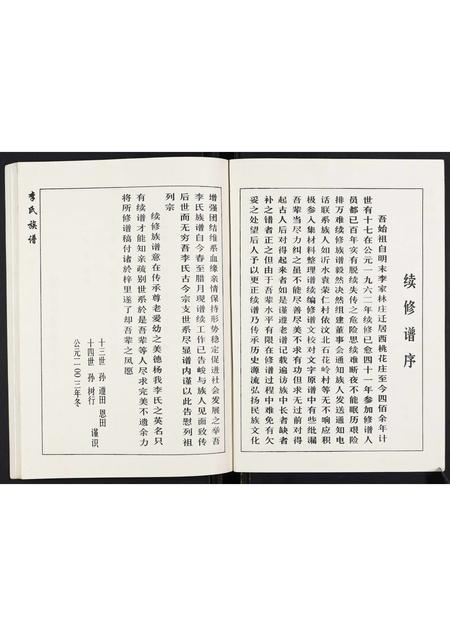 续修谱序
吾始祖自明末李家林庄迁居西桃花庄至今四佰余年计
世有十七在公元一九六二年续修已愈四十一年参加修谱人
员都已百年实有脱续失传之危险思续难断夜不能眠历艰险
排万难续修族谱毅然决然组建董事会通知族人发送通知电
话联系族人如沂水袁荣仁村依汶北石花岭村等无不响应积
极参入集材料整理谱续编修谱文校对文字原谱中有些纰漏
吾辈当尽力纠之虽不能尽善尽美不求有功但求无过前对得
起古人后对得起来者如是谨遵老谱记载遍访族中长者缺者
补之错者正之但由于吾辈水平有限在修谱过程中难免有欠
妥之处望后人予以更正续谱乃传承历史源流弘扬民族文化
增强团结维系血缘亲情保持形势稳定促进社会发展之举吾
李氏族谱自今春至腊月现谱续工作已告峻与族人见面致传
后世而无穷吾李氏古今宗支世系尽显谱内谨以此告慰列祖
列宗
续修族谱意在传承尊老爱幼之美德杨我李氏之英名只
有续谱才能知亲疏别世系於是吾辈等人尽求完美不遗余力
将所修谱稿付诸於梓里遂了却吾辈之夙愿
十三世 孙 遵田 恩田
十四世 孙 树行 谨识
公元二〇〇三年冬
李氏族谱